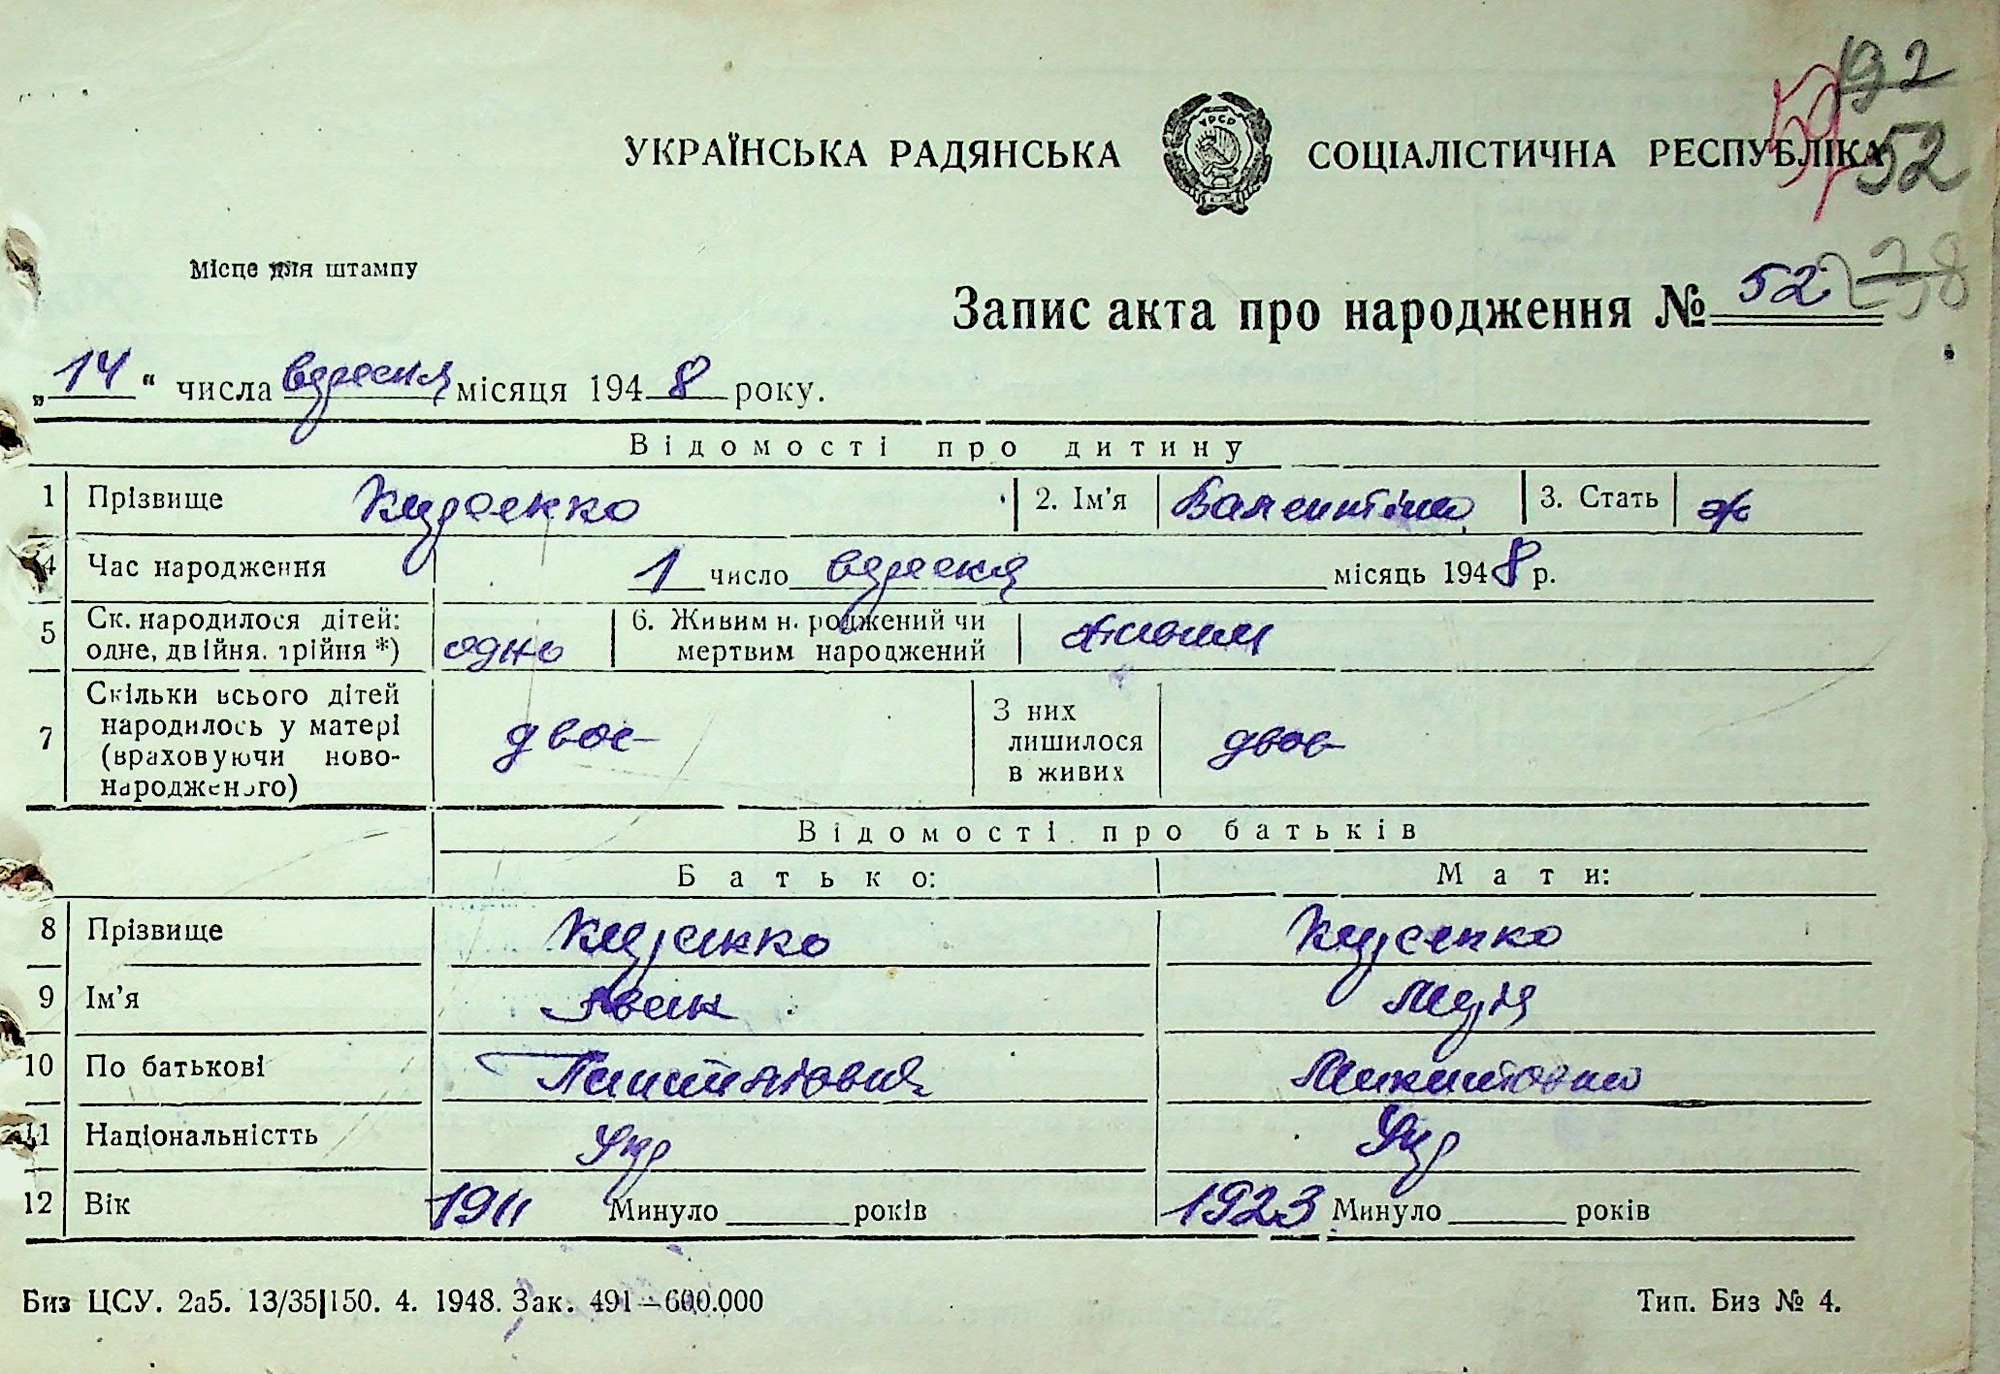 192
59
52
УКРАЇНСЬКА РАДЯНСЬКА СОЦІАЛІСТИЧНА РЕСПУБЛІКА
УРСР
Місце для штампу
Запис акта про народження № 52 238
„14“ числа вересня місяця 1948 року.
Відомості про дитину
1 Прізвище 2. Ім'я Валентина 3. Стать ж
4 Час народження 1 число вересня місяць 1948 р.
5 Ск. народилося дітей: одне, двійня, трійня *) одно 6. Живим народжений чи мертвим народжений живим
7 Скільки всього дітей народилось у матері (враховуючи новонародженого) двоє З них лишилося в живих двоє
Відомості про батьків
Батько: Мати:
8 Прізвище
9 Ім'я Іван Марія
10 По батькові Микитовна
11 Національністть Укр Укр
12 Вік 1911 Минуло років 1923 Минуло років
Биз ЦСУ. 2а5. 13/35|150. 4. 1948. Зак. 491—600.000 Тип. Биз № 4.